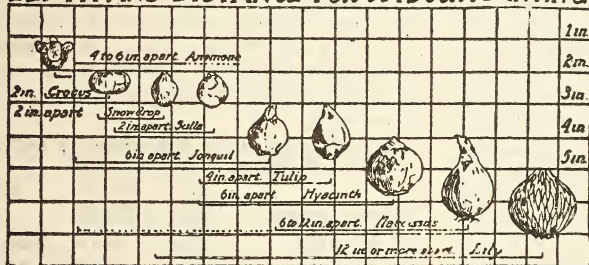 1 in.
4 to 6 in. apart Anemone
2 in.
2 in. Crocus
3 in.
2 in. apart
Snowdrop
2 in. apart Scilla
4 in
6 in apart Jonquil
5 in.
4 in. apart Tulip
6 in. apart Hyacinth
6 to 12 in. apart. Narcissus
12 in or more apart. Lily